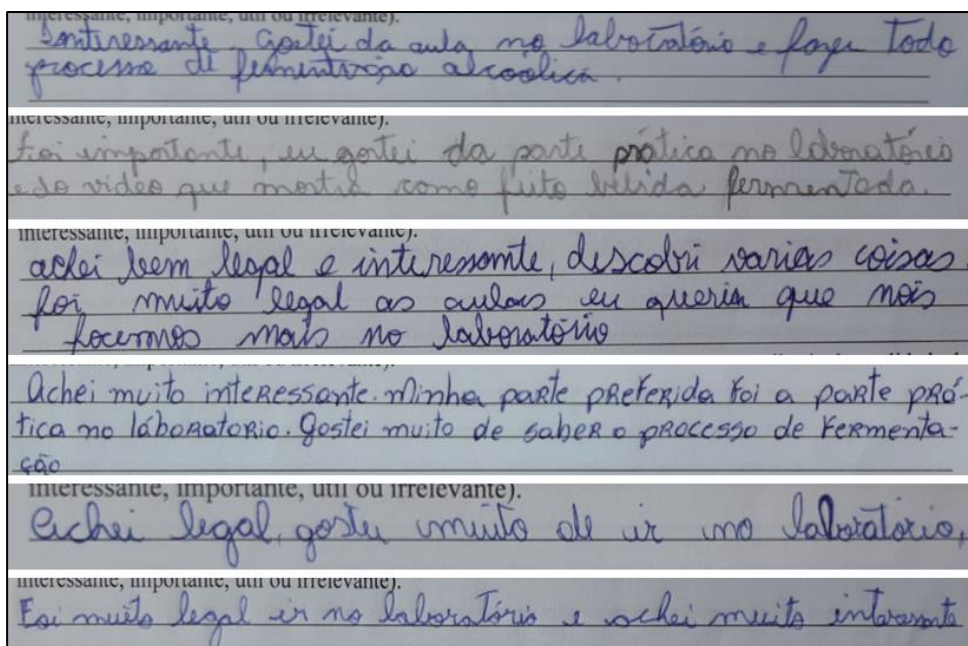 interessante, importante, útil ou irrelevante).
Interessante. Gostei da aula no laboratório e fazer todo
processo de fermentação alcoólica.
interessante, importante, útil ou irrelevante).
Foi importante, eu gostei da parte prática no laboratório
e do video que mostra como feito bebida fermentada.
interessante, importante, útil ou irrelevante).
achei bem legal e interessante, descobri varias coisas
foi muito legal as aulas eu queria que nois
focemos mais no laboratório
Achei muito interessante. Minha parte preferida foi a parte prá-
tica no láboratorio. Gostei muito de saber o processo de fermenta-
ção
interessante, importante, útil ou irrelevante).
Achei legal, gostei muito de ir no laboratório,
interessante, importante, útil ou irrelevante).
Foi muito legal ir no laboratório e achei muito interesante